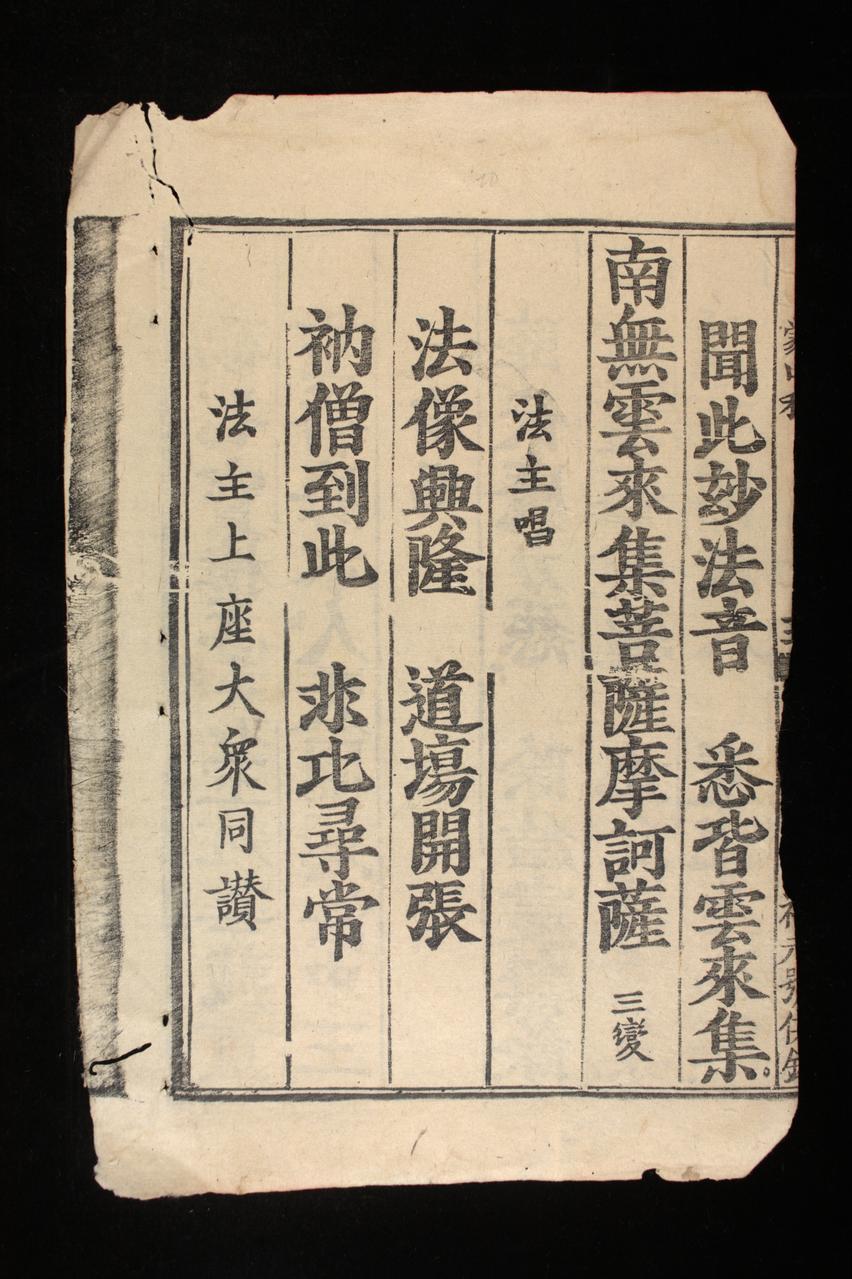 聞此玅法音　悉皆雲來集。
南無雲來集菩薩摩訶薩　三變
法主唱
法像興隆　道塲開張
衲僧到此　非比尋常
法主上座大衆同讃